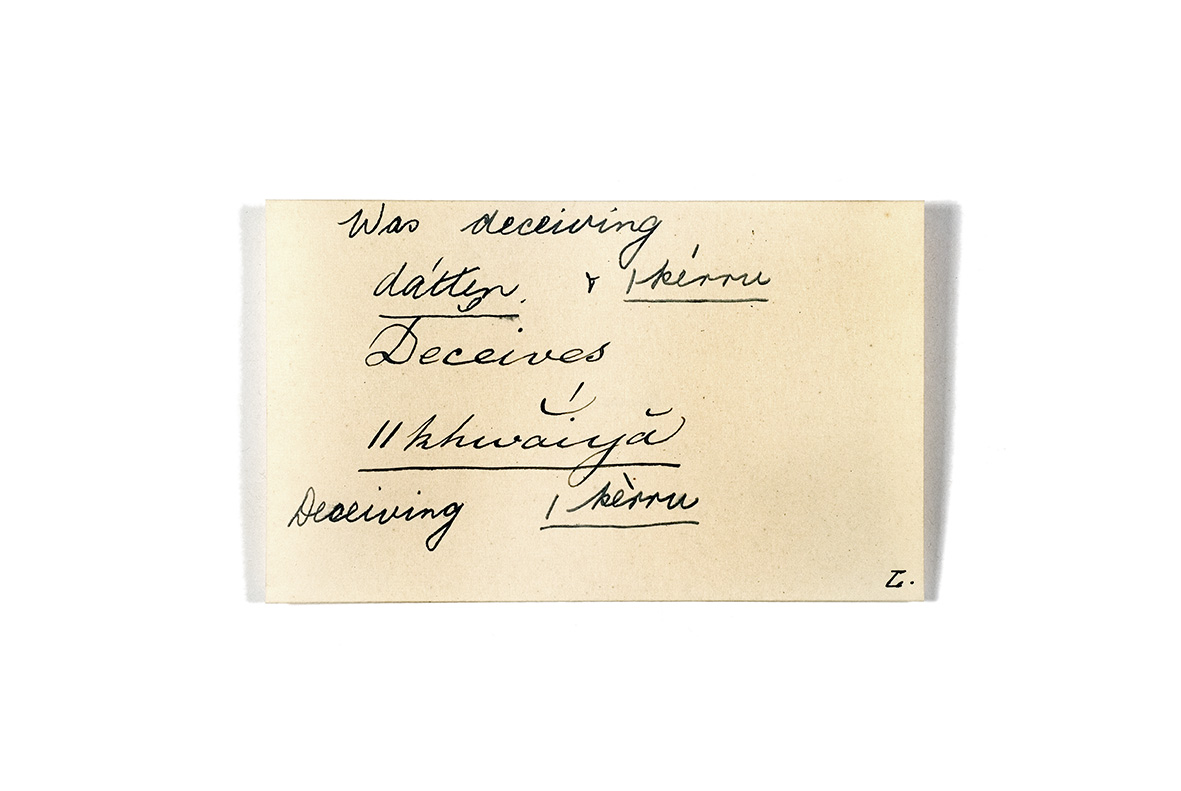 Was deceiving
dátten. & |kérru
Deceives
||khwā́iyă
Deceiving |kèrru
L.